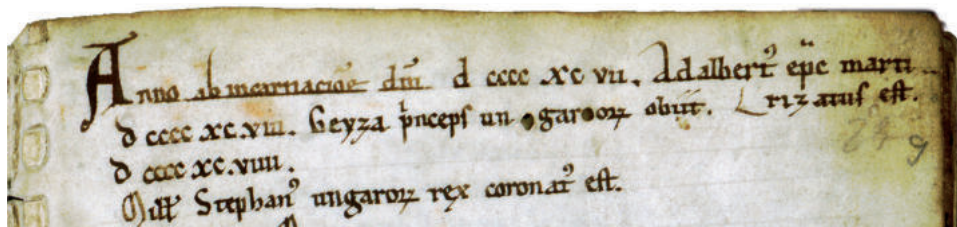 Anno ab incarnacioē dnī d cccc xc vii. Adalbertꝰ ep̄c marti
d cccc xc.viii. Geyza pⁱnceps un ogaroorꝝ obiit. rizatus est.
d cccc xc.viiii.
Mill̄ Stephanꝰ ungarorꝝ rex coronatꝰ est.